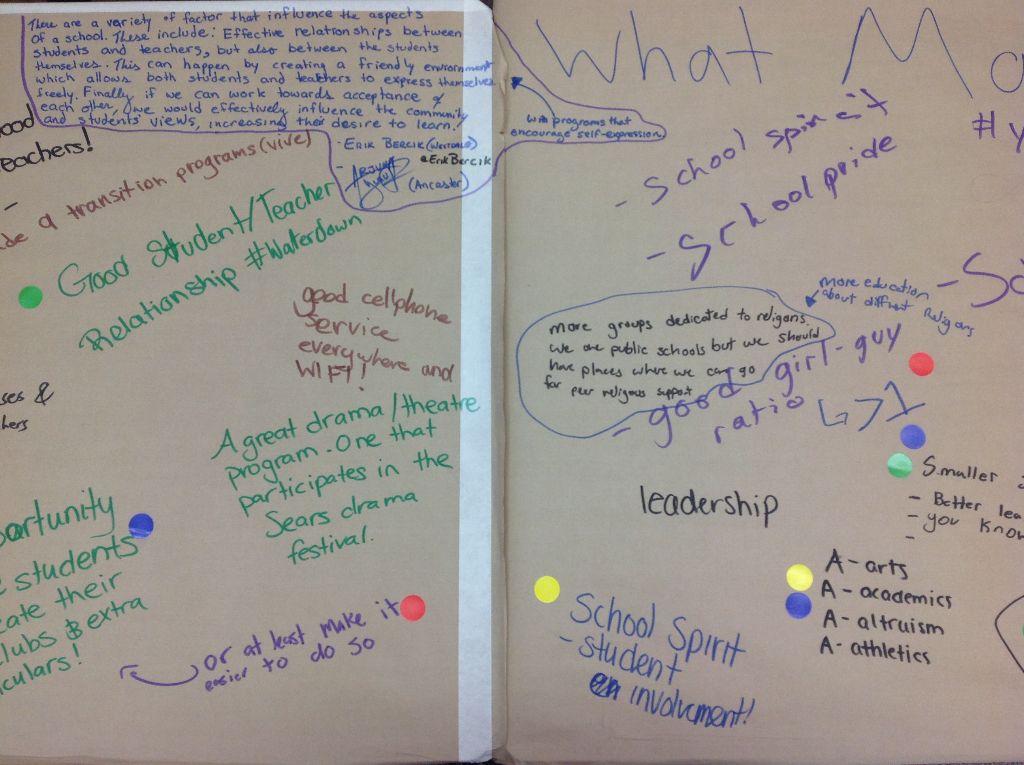 There are a variety of factor that influence the aspects
Of a school. These include: Effective relationships between
students and teachers, but also between the students
themselves. This can happen by creating a friendly environment
which allows both students and teachers to express themselves
freely. Finally if we can work towards acceptance of
each other, we would effectively influence the community
and students' views, increasing their desire to learn!
- ERIK BERCIK (WESTDALE)
@ErikBercik
(Ancaster)
with programs that
encourage self-expression.
eachers!
a transition programs (vive)
Good Student/Teacher
Relationship #Waterdown
good cellphone
service
everywhere and
WIFI!
ses &
hers
A great drama/theatre
program. One that
participates in the
Sears drama
festival.
portunity
students
ate their
clubs & extra
iculars!
or at least make it
easier to do so
What Ma
#y
- School spirit
- School pride
- Sc
more education
about diffrent religions
more groups dedicated to religions.
we are public schools but we should
have places where we can go
for peer religous support
- good girl-guy
ratio ↳ > 1
leadership
Smaller
- Better lea
- you know
-
A - arts
A - academics
A - altruism
A - athletics
School Spirit
- student
involvement!